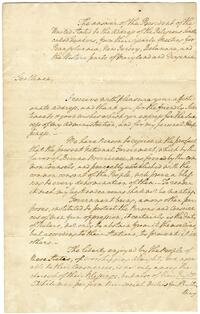 The answer of the President of the
United States to the address of the Religious Society
called Quakers, from their yearly Meeting for
Pennsylvania, New Jersey, Delaware, and
the Western parts of Maryland and Virginia
Gentlemen,
I receive with pleasure your affectionate
address, and thank you for the friendly Sentiments
& good wishes which you express for the Success
of my administration, and for my personal Happiness.
We have Reason to rejoice in the prospect
that the present National Government, which by the
favor of Divine Providence, was formed by the common
Counsels, and peaceably established with the
common consent of the People, will prove a blessing
to every denomination of them. To render
it such, my best endeavours shall not be wanting.
Government being, among other purposes,
instituted to protect the Persons and Consciences
of men from oppression, it certainly is the duty
of Rulers, not only to abstain from it themselves,
but according to their Stations, to prevent it in
others.
The liberty enjoyed by the People of
these States, of worshipping Almighty God agreeable
to their Consciences, is not only among the
choicest of their Blessings, but also of their Rights.